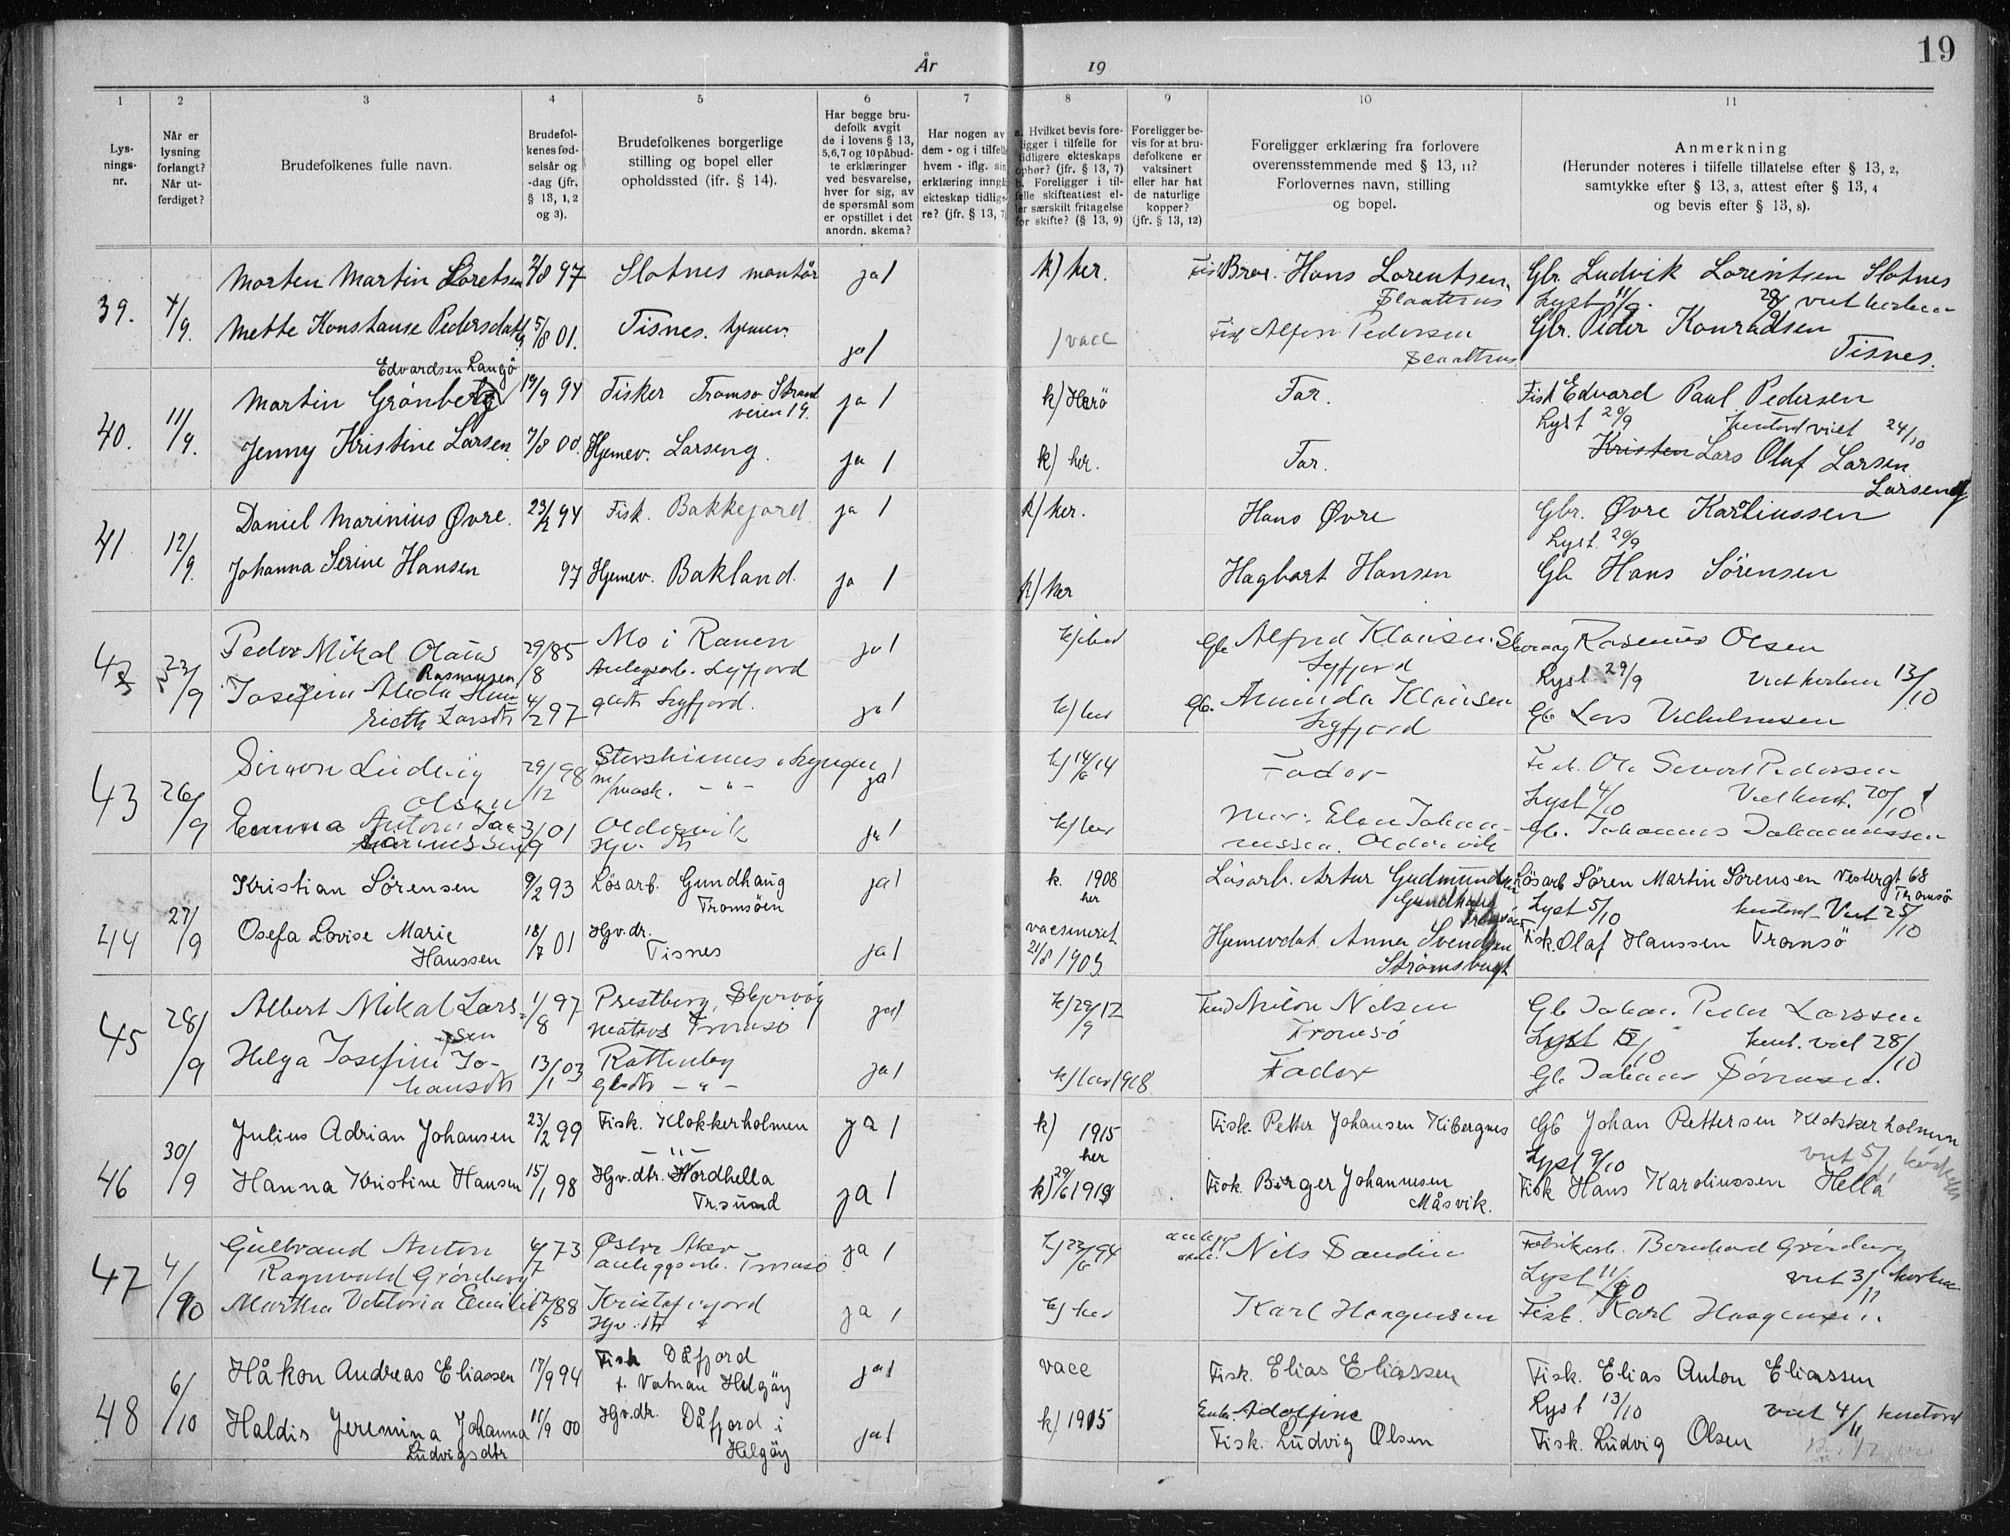 19
År
19
1
2
3
4
5
6
7
8
9
10
11
Lys-
nings-
nr.
Når er
lysning
forlangt?
Når ut-
ferdiget?
Brudefolkenes fulle navn.
Brudefol-
kenes fød-
selsår og
-dag (jfr.
§ 13, 1, 2
og 3).
Brudefolkenes borgerlige
stilling og bopel eller
opholdssted (ifr. § 14).
Har begge bru-
defolk avgit
de i lovens § 13,
5,6,7 og 10 påbud-
te erklæringer
ved besvarelse,
hver for sig, av
de spørsmål som
er opstillet i det
anordn. skema?
Har nogen av
dem - og i tilfelle
hvem - iflg. sin
erklæring inngå
ekteskap tidlige
re? (jfr. § 13, 7
a. Hvilket bevis fore-
ligger i tilfelle for
tidligere ekteskaps
ophør? (jfr. § 13, 7)
b. Foreligger i til-
felle skifteattest el-
ler særskilt fritagelse
for skifte? (§ 13, 9)
Foreligger be-
vis for at bru-
defolkene er
vaksinert
eller har hat
de naturlige
kopper?
(jfr. § 13, 12)
Foreligger erklæring fra forlovere
overensstemmende med § 13, 11?
Forlovernes navn, stilling
og bopel.
Anmerkning
(Herunder noteres i tilfelle tillatelse efter § 13, 2,
samtykke efter § 13, 3, attest efter § 13, 4
og bevis efter § 13, 8).
39. 4/9. Morten Martin Loretsen 2/8 97 Slotnes montör ja 1 k) her. Bror. Hans Lorentsen Gbr. Ludvik Lorentsen Slotnes
Slaattnes Lyst 11/9.
Mette Konstanse Pedersdatt 5/8 01. Tisnes. hjemev. ja 1 vacc Alfon Pedersen Gbr. Peder Konradsen
Slaattnes Tisnes.
Edvardsen Langö
40. 11/9. Martin Grønberg 19/9 94 Fisker Tromsø Strand ja 1 k) Herö Far. Fisk Edvard Paul Pedersen
veien 19. Lyst 20/9 viet 24/10
Jenny Kristine Larsen 7/8 00. Hjemev. Larseng. ja 1 k) her. Far. Kristen Lars Oluf Larsen
Larseng
41. 12/9. Daniel Marinius Øvre. 23/2 94 Fisk. Bakkejord ja 1 k) her. Hans Øvre Gbr. Øvre Karliussen
Lyst. 20/9
Johanna Serine Hansen 97 Hjemev. Bakland. ja 1 k) her Hagbart Hansen Gb Hans Sørensen
42 23/9 Peder Mikal Olaus 29/8 85 Mo i Ranen ja 1 Gb Alfred Klausen Rasmus Olsen
Rasmussen Lyfjord Lyfjord Lyst 29/9 13/10
Josefine Alida Hen- 4/2 97 Lyfjord. ja 1 k) her Gb. Klausen
riette Larsdtr Lyfjord Gb Lars Vilhelmsen
43 26/9 Simon Ludvig 29/12 98 ja 1 k) 14/6 14 Fader Fisk. Ole Sivert Pedersen
Olsen Lyst 4/10 20/10
Emma 3/9 01 Oldervik ja 1 k) her Elen Johan- Gb. Johannes Johannessen
nessen. Oldervik
44 27/9 Kristian Sörensen 9/2 93 Lösarb. Gundhaug ja 1 k. 1908 Lösarb. Artur Gudmundsen Lösarb Sören Martin Sörensen Vestergt 68
Tromsöen her Tromsö
Lyst 5/10 Viet 25/10
Osefa Lovise Marie 18/7 01 Hgv.dr. vacsineret Hjemevdat. Anna Svendsen Fisk. Olaf Hanssen Tromsö
Hanssen Tisnes ja 1 21/8 1903 Strömsbugt
45 28/9 Albert Mikal Lars- 1/8 97 Prestberg, Skjervöy ja 1 k) 29/9 12 Nilsen Gb Johan Peder Larssen
sen Tromsö Tromsö Lyst 5/10 viet 28/10
Helga Josefine Jo- 13/1 03 Rottenby ja 1 1918 Fader Gb Johans Sörensen.
hansdtr - " -
46 30/9 Julius Adrian Johansen 23/2 99 Fisk. Klokkerholmen ja 1 k) 1915 Fisk. Petter Johansen Kibergnes Gb Johan Pettersen Klokkerholmen
- " - her Lyst 9/10 viet 5/
Hanna Kristine Hansen 15/1 98 Hgv.dtr. Nordhella ja 1 k) 29/6 1918 Fisk. Birger Johannesen Fisk Hans Karoliussen Hella
Tr.sund Måsvik.
47 4/10 Gulbrand Anton 6/7 73 Østre Aker ja 1 k) 22/6 94 Nils Sandin Fabrikarb. Bernhard Grönberg
Ragnvald Grönberg anleggsarb. Tromsö Lyst 11/10 viet 3/11
Martha Viktoria Emilie 17/5 88 Kristofjord ja 1 k) her Karl Haagensen Fisk. Karl Haagensen.
48 6/10 Håkon Andreas Eliassen 17/9 94 Fisk Dåfjord ja 1 vacc Fisk. Elias Eliassen Fisk. Elias Anton Eliassen
f. Vatnan Helgöy Lyst 13/10 viet 4/11 kontoret
Haldis Jeremina Johanna 11/9 00 Hgv.dr. Dåfjord i ja 1 k) 1915 Enke. Adolfine
Ludvigsdtr Helgöy Fisk. Ludvig Olsen Fisk. Ludvig Olsen